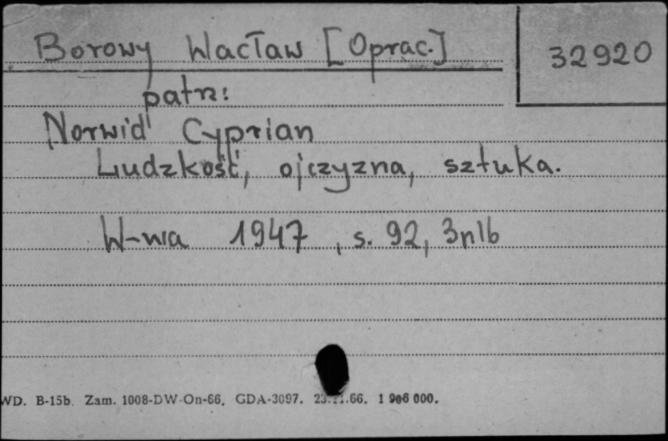 Borowy Wacław [Oprac.]
32920
patrz:
Norwid Cyprian
Ludzkość, ojczyzna, sztuka.
W-wa 1947, s. 92, 3nlb
WD. B-15b. Zam. 1008-DW-On-66. GDA-3097. .66. 1 000.